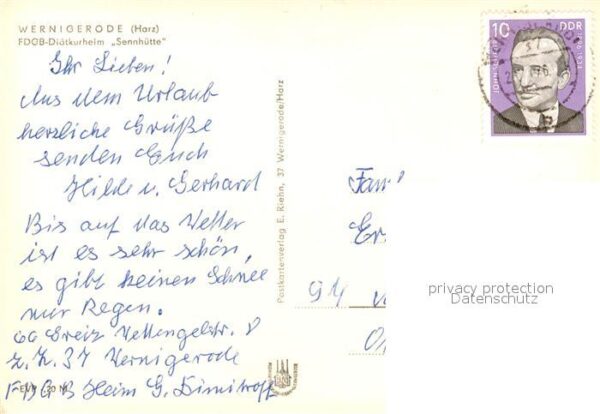 WERNIGERODE (Harz)
FDGB-Diätkurheim „Sennhütte"
Ihr Lieben!
Aus dem Urlaub
herzliche Grüße
senden Euch
Hilde u. Gerhard
Bis auf das Wetter
ist es sehr schön,
es gibt keinen Schnee
nur Regen.
66 Greiz
z. Z. 37 Wernigerode
FDGB Heim G. Dimitroff
EVP
Postkartenverlag E. Riehn, 37 Wernigerode/Harz
10
DDR
JOHN
Fam
Er
privacy protection
Datenschutz